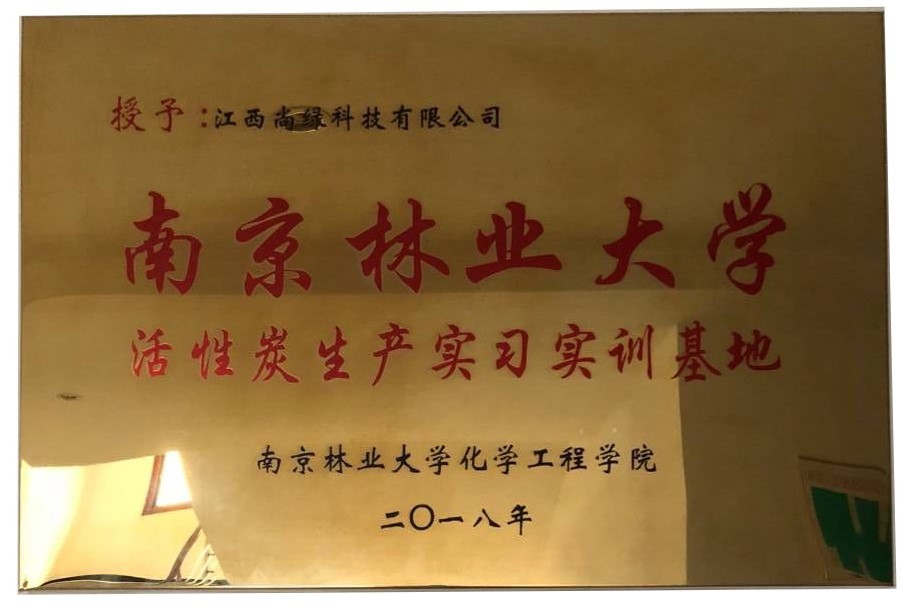 授予：江西尚绿科技有限公司
南京林业大学
活性炭生产实习实训基地
南京林业大学化学工程学院
二〇一八年